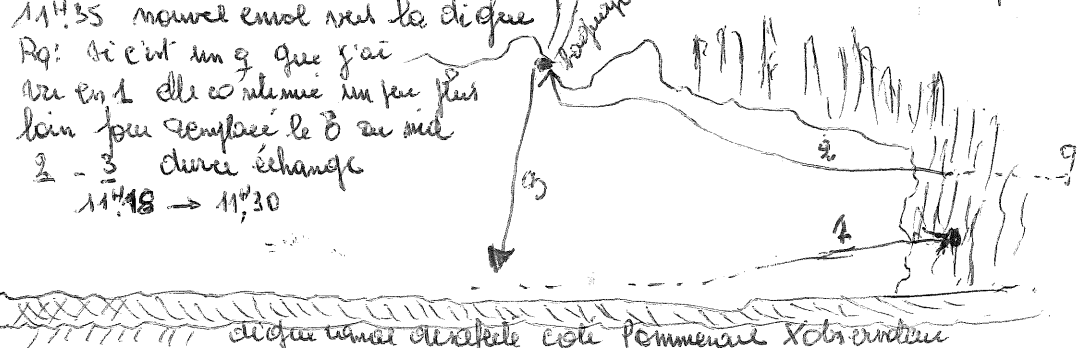 11H35 nouvel envol vers la digue
Rq: si c'est un ♀ que j'ai
vu en 1 elle continue un peu plus
loin pour remplacer le ♂ au nid
2 - 3 durée échange
11H18 → 11H30
3
2
1
♀
digue canal desséché coté Pommeraie X observateur